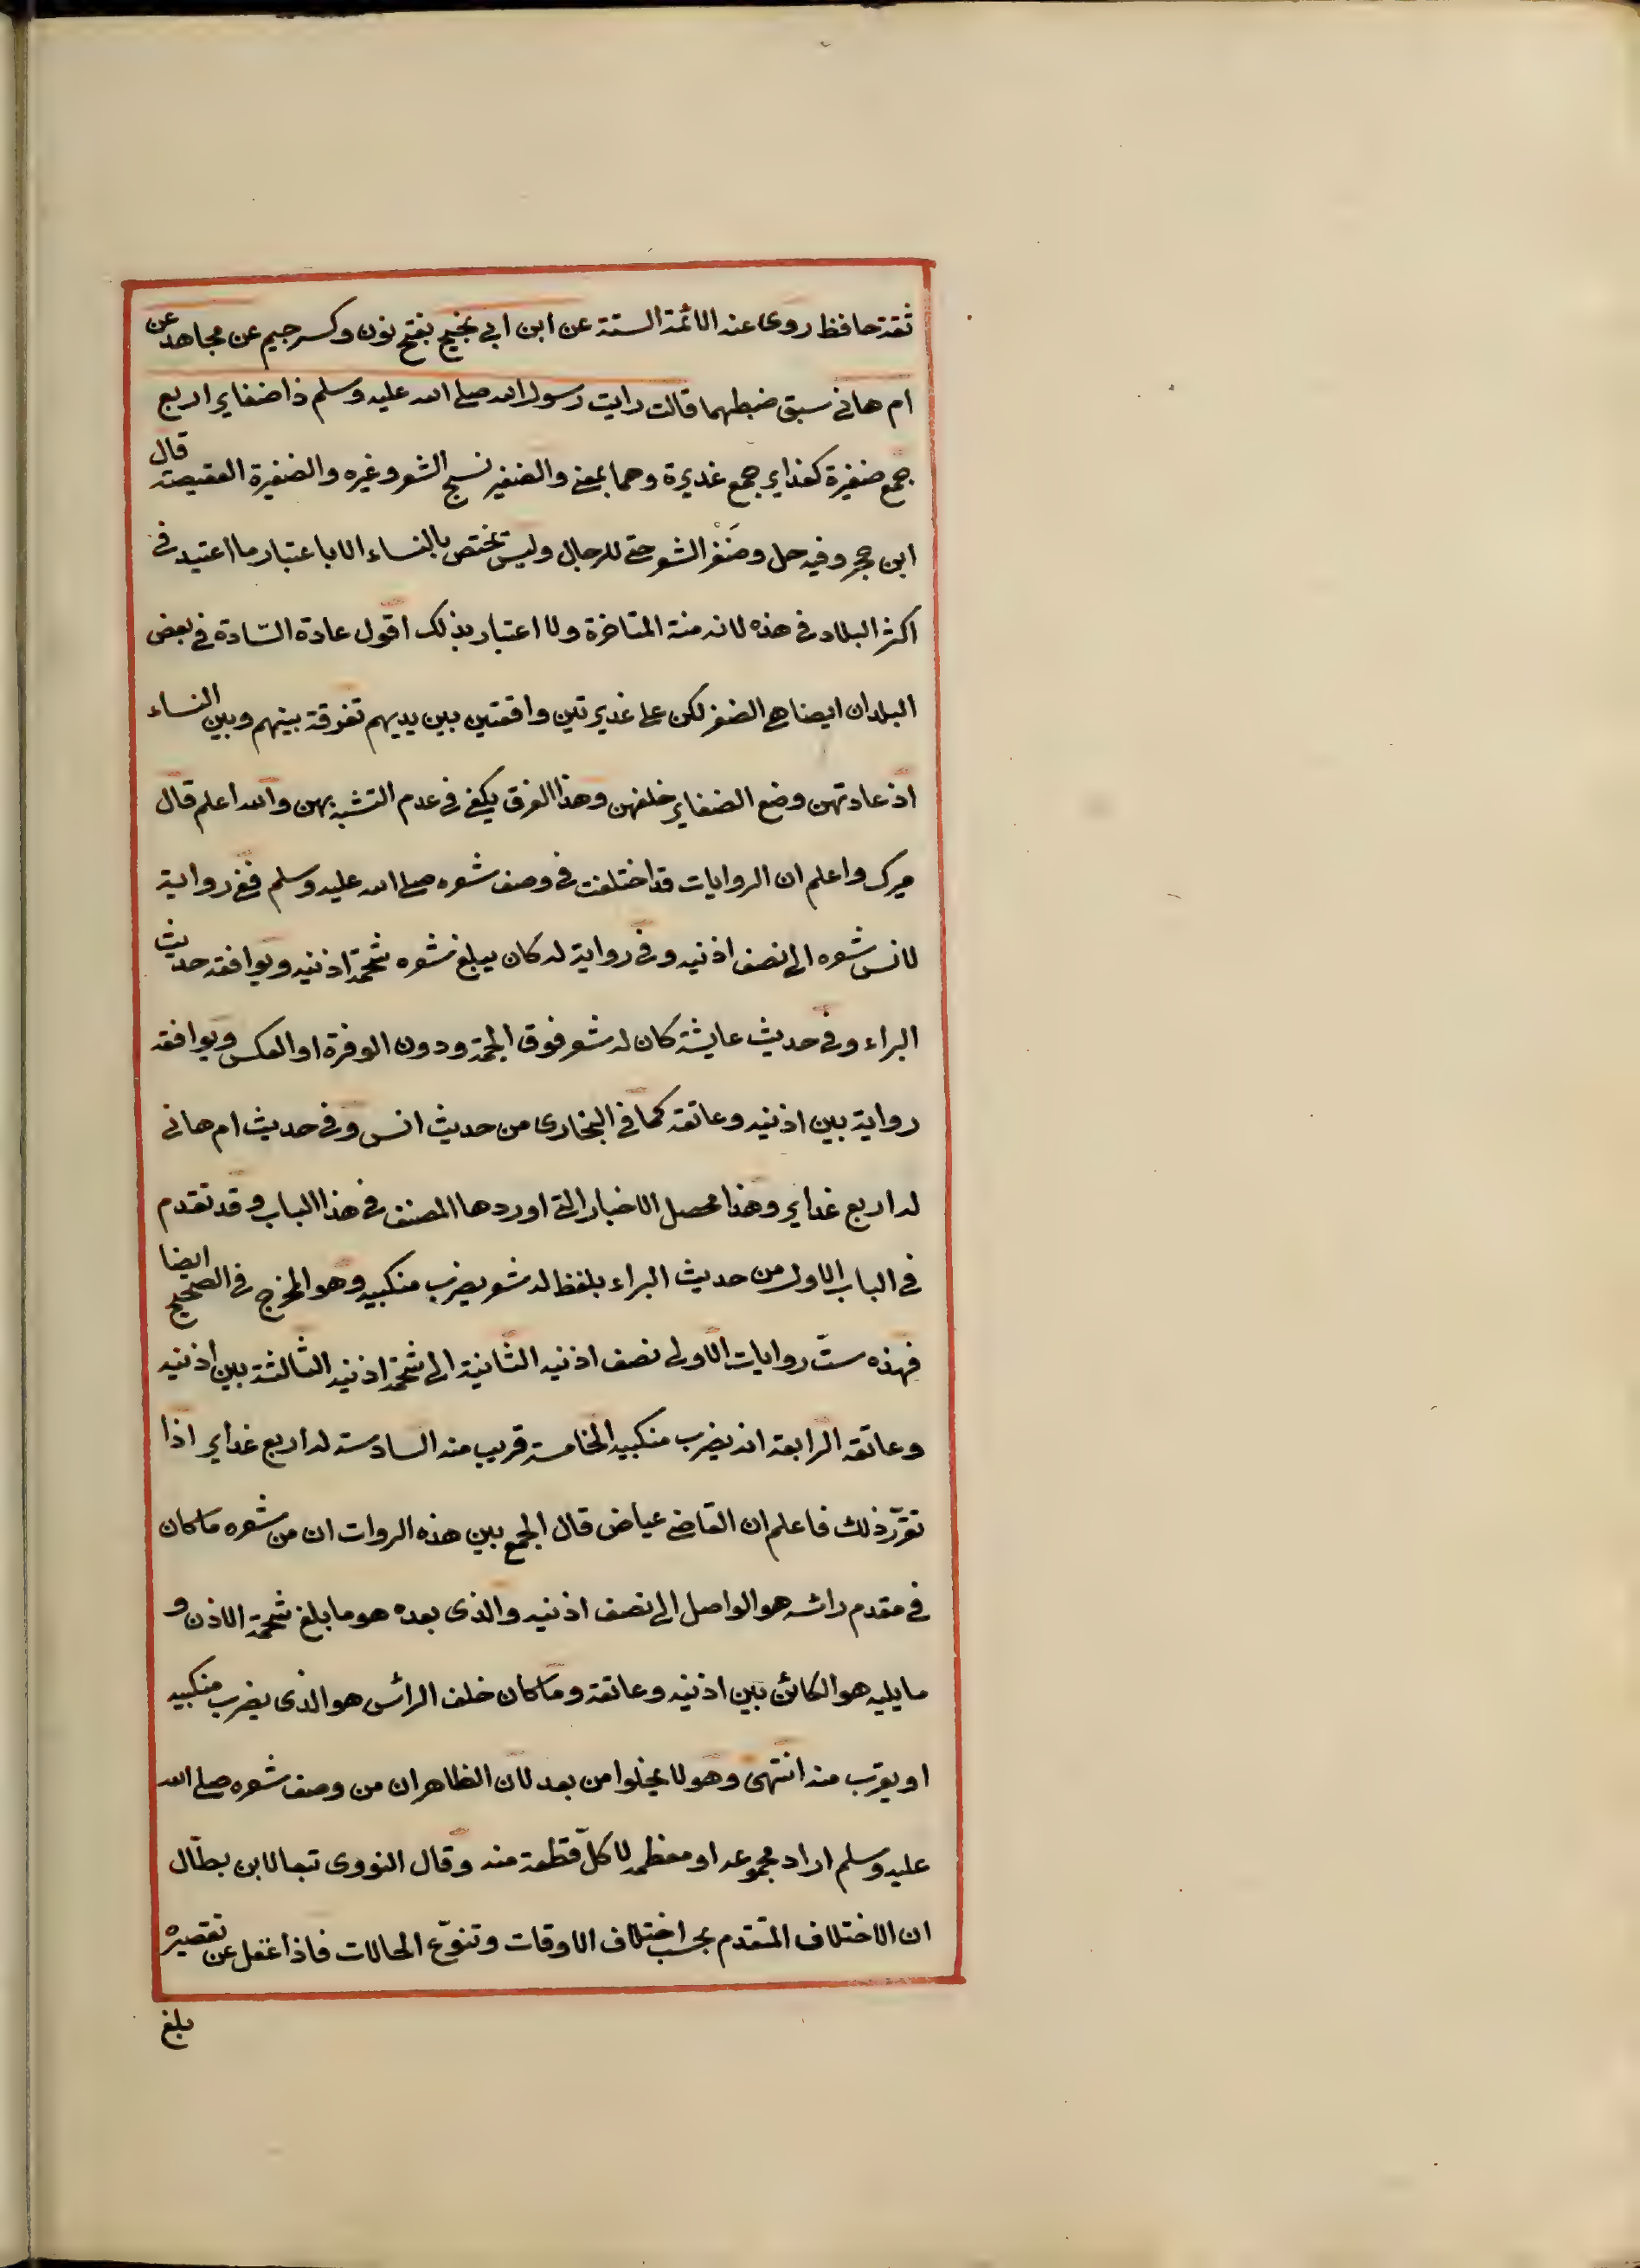 ثقة حافظ روى عنه الائمة الستة عن ابن ابي نجيح بفتح نون وكسر جيم عن مجاهد عن
ام هانى سبق ضبطهما قالت رايت رسول الله صلى الله عليه وسلم ذا ضفاير اربع
جمع ضفيرة كغداير جمع غديرة وهما بمعنى والضفير نسج الشعر وغيره والضفيرة العقيصة قال
ابن حجر وفيه حل وضَفْر الشعر حتى للرجال وليس يختص بالنساء الا باعتبار ما اعتيد فى
اكثر البلاد فى هذه لانه منة المتاخرة ولا اعتبار بذلك اقول عادة السّادة فى بعض
البلدان ايضا هى الضفر لكن على غديرتين واقعتين بين يديهم تفرقة بينهم وبين النساء
اذ عادتهن وضع الضفاير خلفهن وهذا الفرق يكفى فى عدم التشبه بهن والله اعلم قال
ميرك واعلم ان الروايات قد اختلفت فى وصف شعره صلى الله عليه وسلم ففى رواية
لانس شعره الى نصف اذنيه وفى رواية له كان يبلغ شعره شحمة اذنيه ويوافقه حديث
البراء وفى حديث عايشة كان له شعر فوق الجمة ودون الوفرة او العكس ويوافقه
رواية بين اذنيه وعاتقه كما فى البخارى من حديث انس وفى حديث ام هانى
له اربع غداير وهذا محصل الاخبار التى اوردها المصنف فى هذا الباب وقد تقدم
فى الباب الاول من حديث البراء بلفظ له شعر يضرب منكبيه وهو المخرج فى الصحيح ايضا
فهذه ستّ روايات الاولى نصف اذنيه الثانية الى شحمة اذنيه الثالثة بين اذنيه
وعاتقه الرابعة انه يضرب منكبيه الخامسة قريب منه السادسة له اربع غداير اذا
تقرّر ذلك فاعلم ان القاضى عياض قال الجمع بين هذه الروات ان من شعره ما كان
فى مقدم رائسه هو الواصل الى نصف اذنيه والذى بعده هو ما بلغ شحمة الاذن و
ما يليه هو الكائن بين اذنيه وعاتقه وما كان خلف الرائس هو الذى يضرب منكبيه
او يقرب منه انتهى وهو لا يخلوا من بعد لان الظاهر ان من وصف شعره صلى الله
عليه وسلم اراد مجموعه او معظمه لا كلّ قطعة منه وقال النووى تبعا لابن بطّال
ان الاختلاف المتقدم بحسب اختلاف الاوقات وتنوّع الحالات فاذا غفل عن تقصيره
بلغ